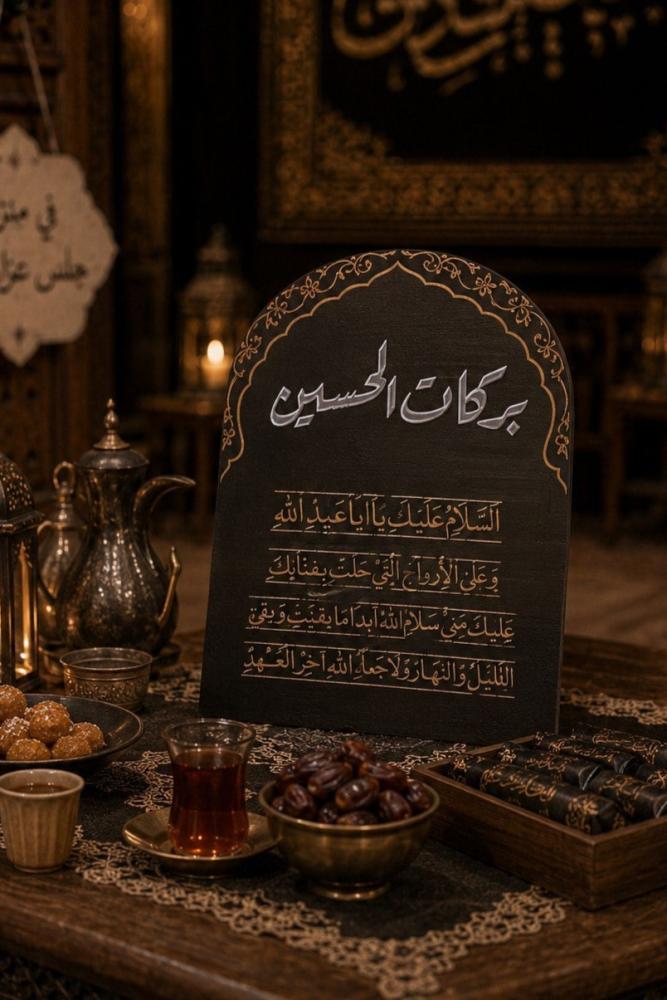 في منز
جلس عزا
بركات الحسين
السَّلَامُ عَلَيْكَ يَا أَيَا عَبْدِ اللهِ
وَعَلَى الأرواح الَّتِي حَلَّتْ بِفِنَائِكَ
عَلَيْكَ مِنِّي سَلَامُ اللهِ أبَدًا مَا بَقِيتُ وَبَقِيَ
اللَّيْلُ وَالنَّهَارُ وَلَا جَعَلَهُ اللهِ آخِرَ الْعَهْدِ